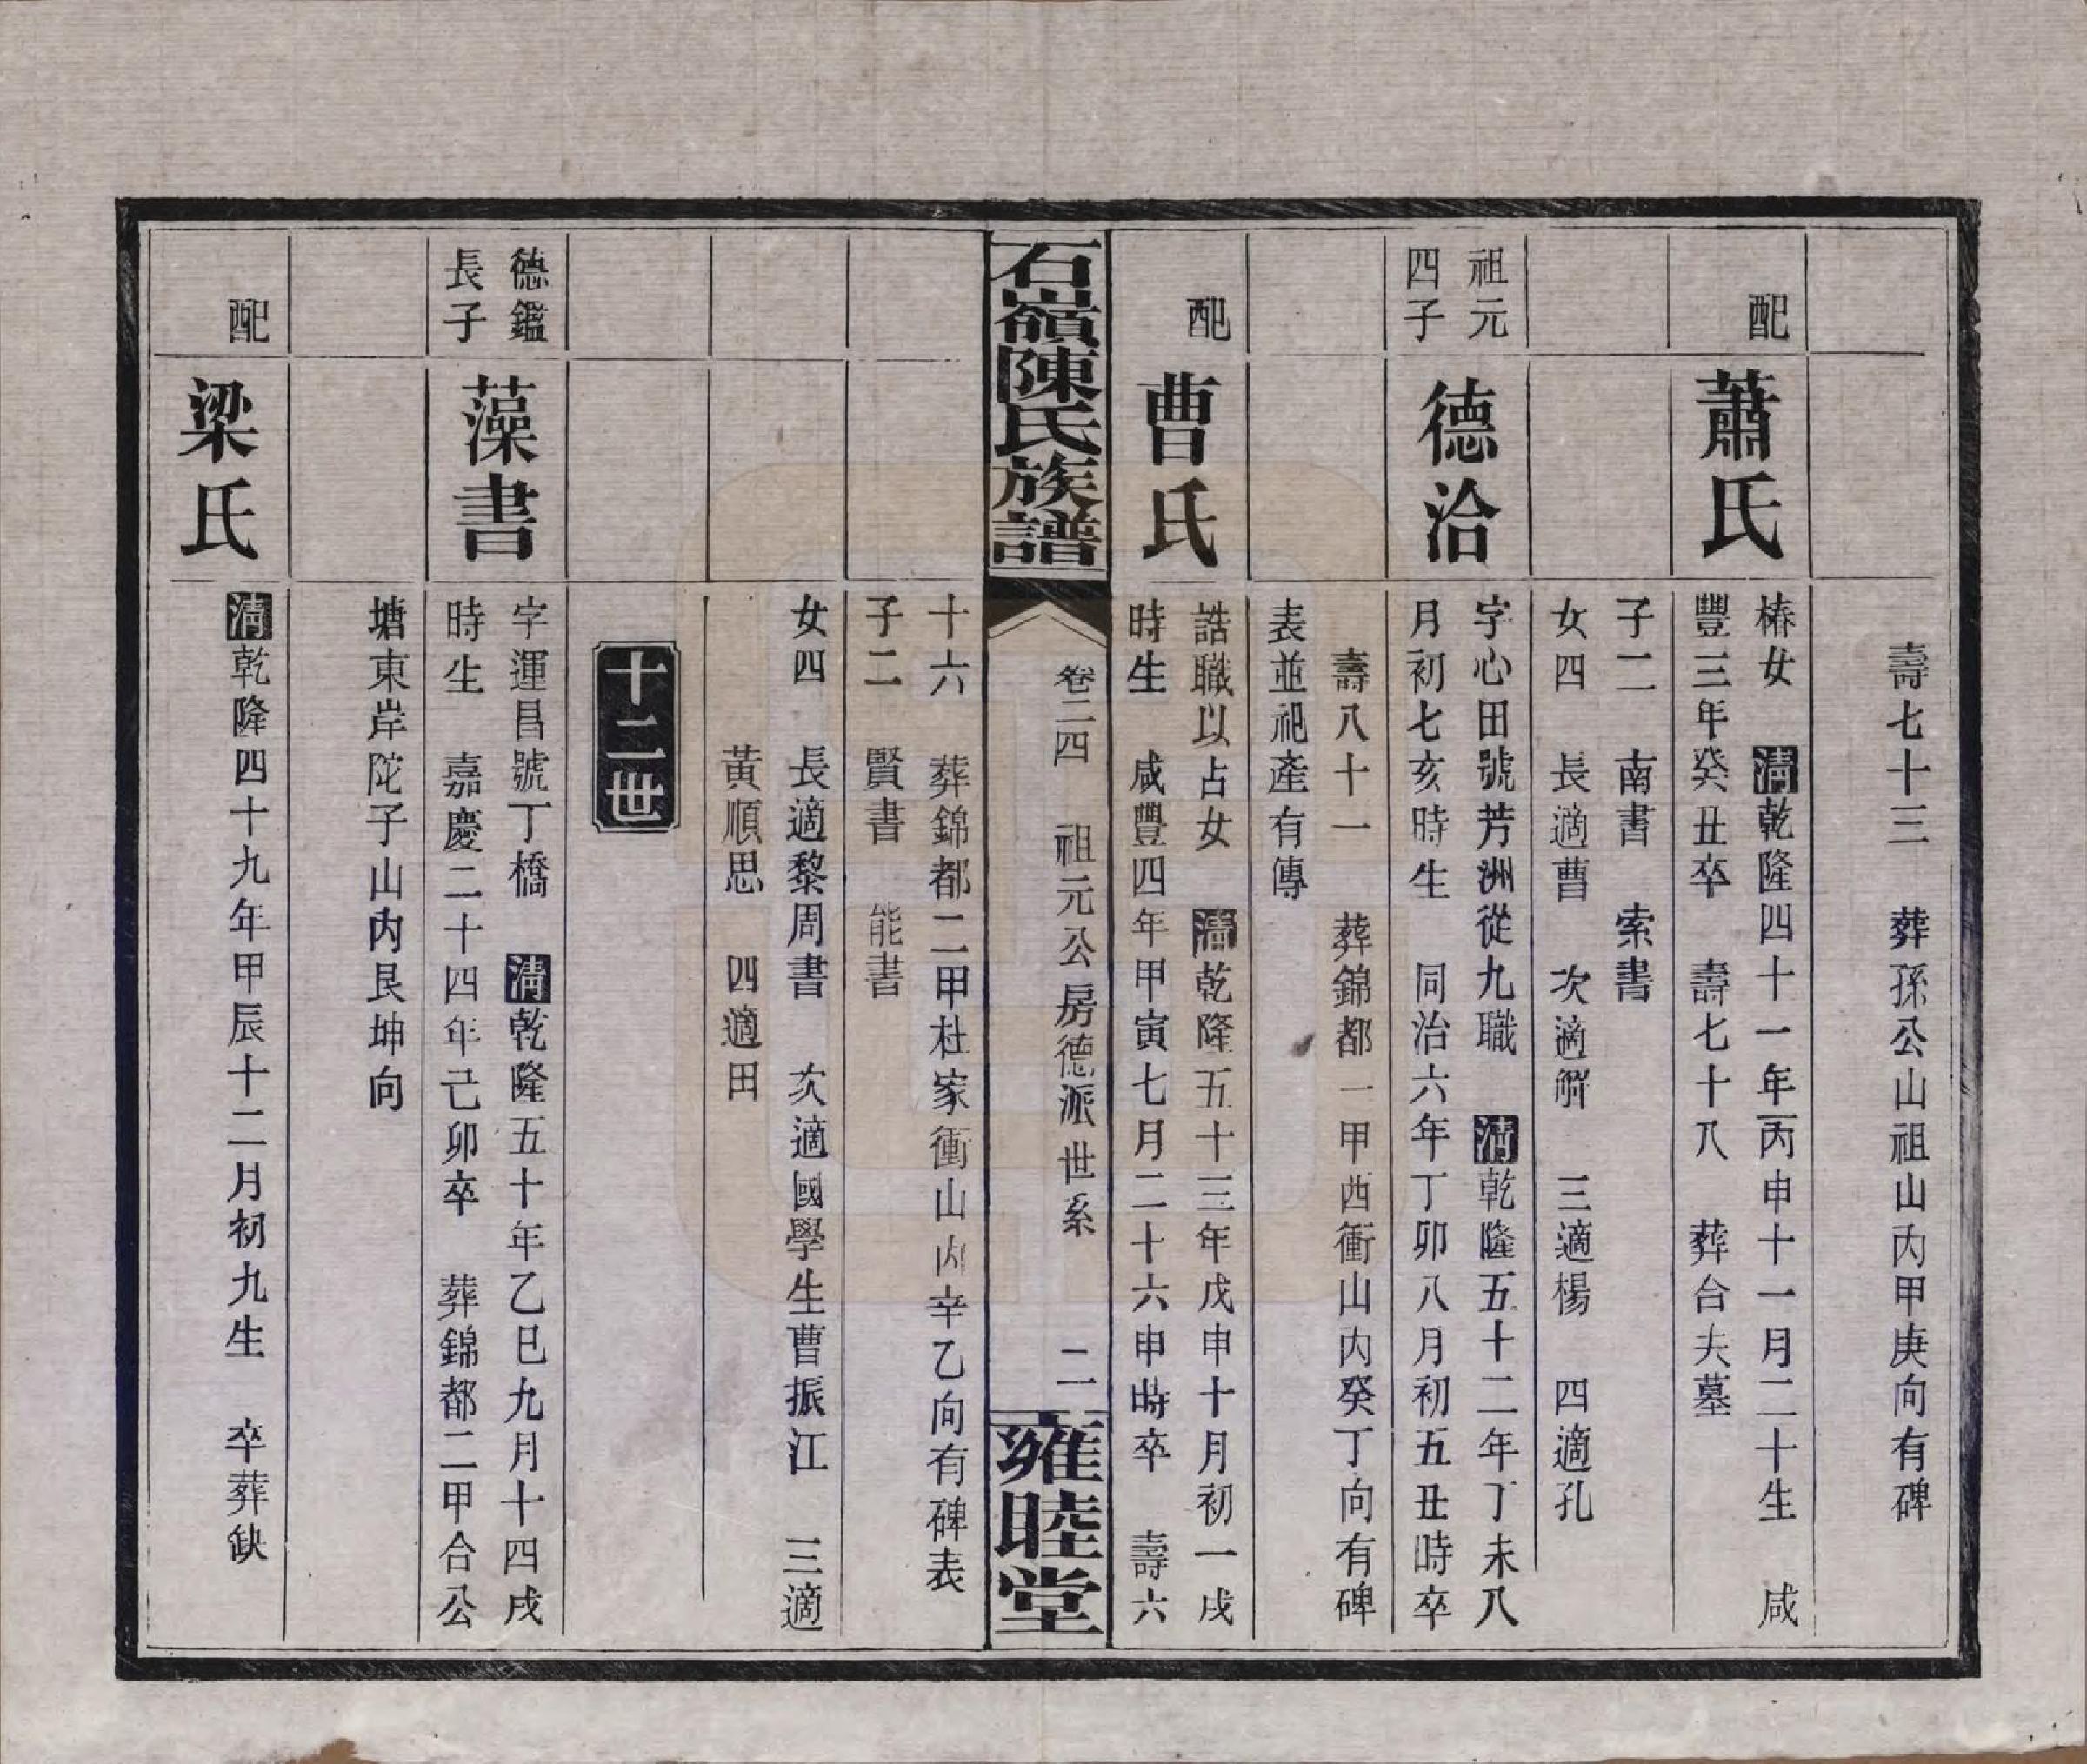 壽七十三　葬孫公山祖山內甲庚向有碑
配
蕭氏
椿女　清乾隆四十一年丙申十一月二十生　咸
豐三年癸丑卒　壽七十八　葬台夫墓
子二　南書　索書
女四　長適曹　次適觧　三適楊　四適孔
祖元
四子
德洽
字心田號芳洲從九職　清乾隆五十二年丁未八
月初七亥時生　同治六年丁卯八月初五丑時卒
壽八十一　葬錦都一甲西衝山內癸丁向有碑
表並祀產有傳
配
曹氏
誥職以占女　清乾隆五十三年戊申十月初一戌
時生　咸豐四年甲寅七月二十六申時卒　壽六
石嶺陳氏族譜
卷二四　祖元公房德派世系　二
雍睦堂
十六　葬錦都二甲杜家衝山內辛乙向有碑表
子二　賢書　能書
女四　長適黎周書　次適國學生曹振江　三適
黃順思　四適田
十二世
德鑑
長子
藻書
字運昌號丁橋　清乾隆五十年乙巳九月十四戌
時生　嘉慶二十四年己卯卒　葬錦都二甲合公
塘東岸陀子山內艮坤向
配
梁氏
清乾隆四十九年甲辰十二月初九生　卒葬缺